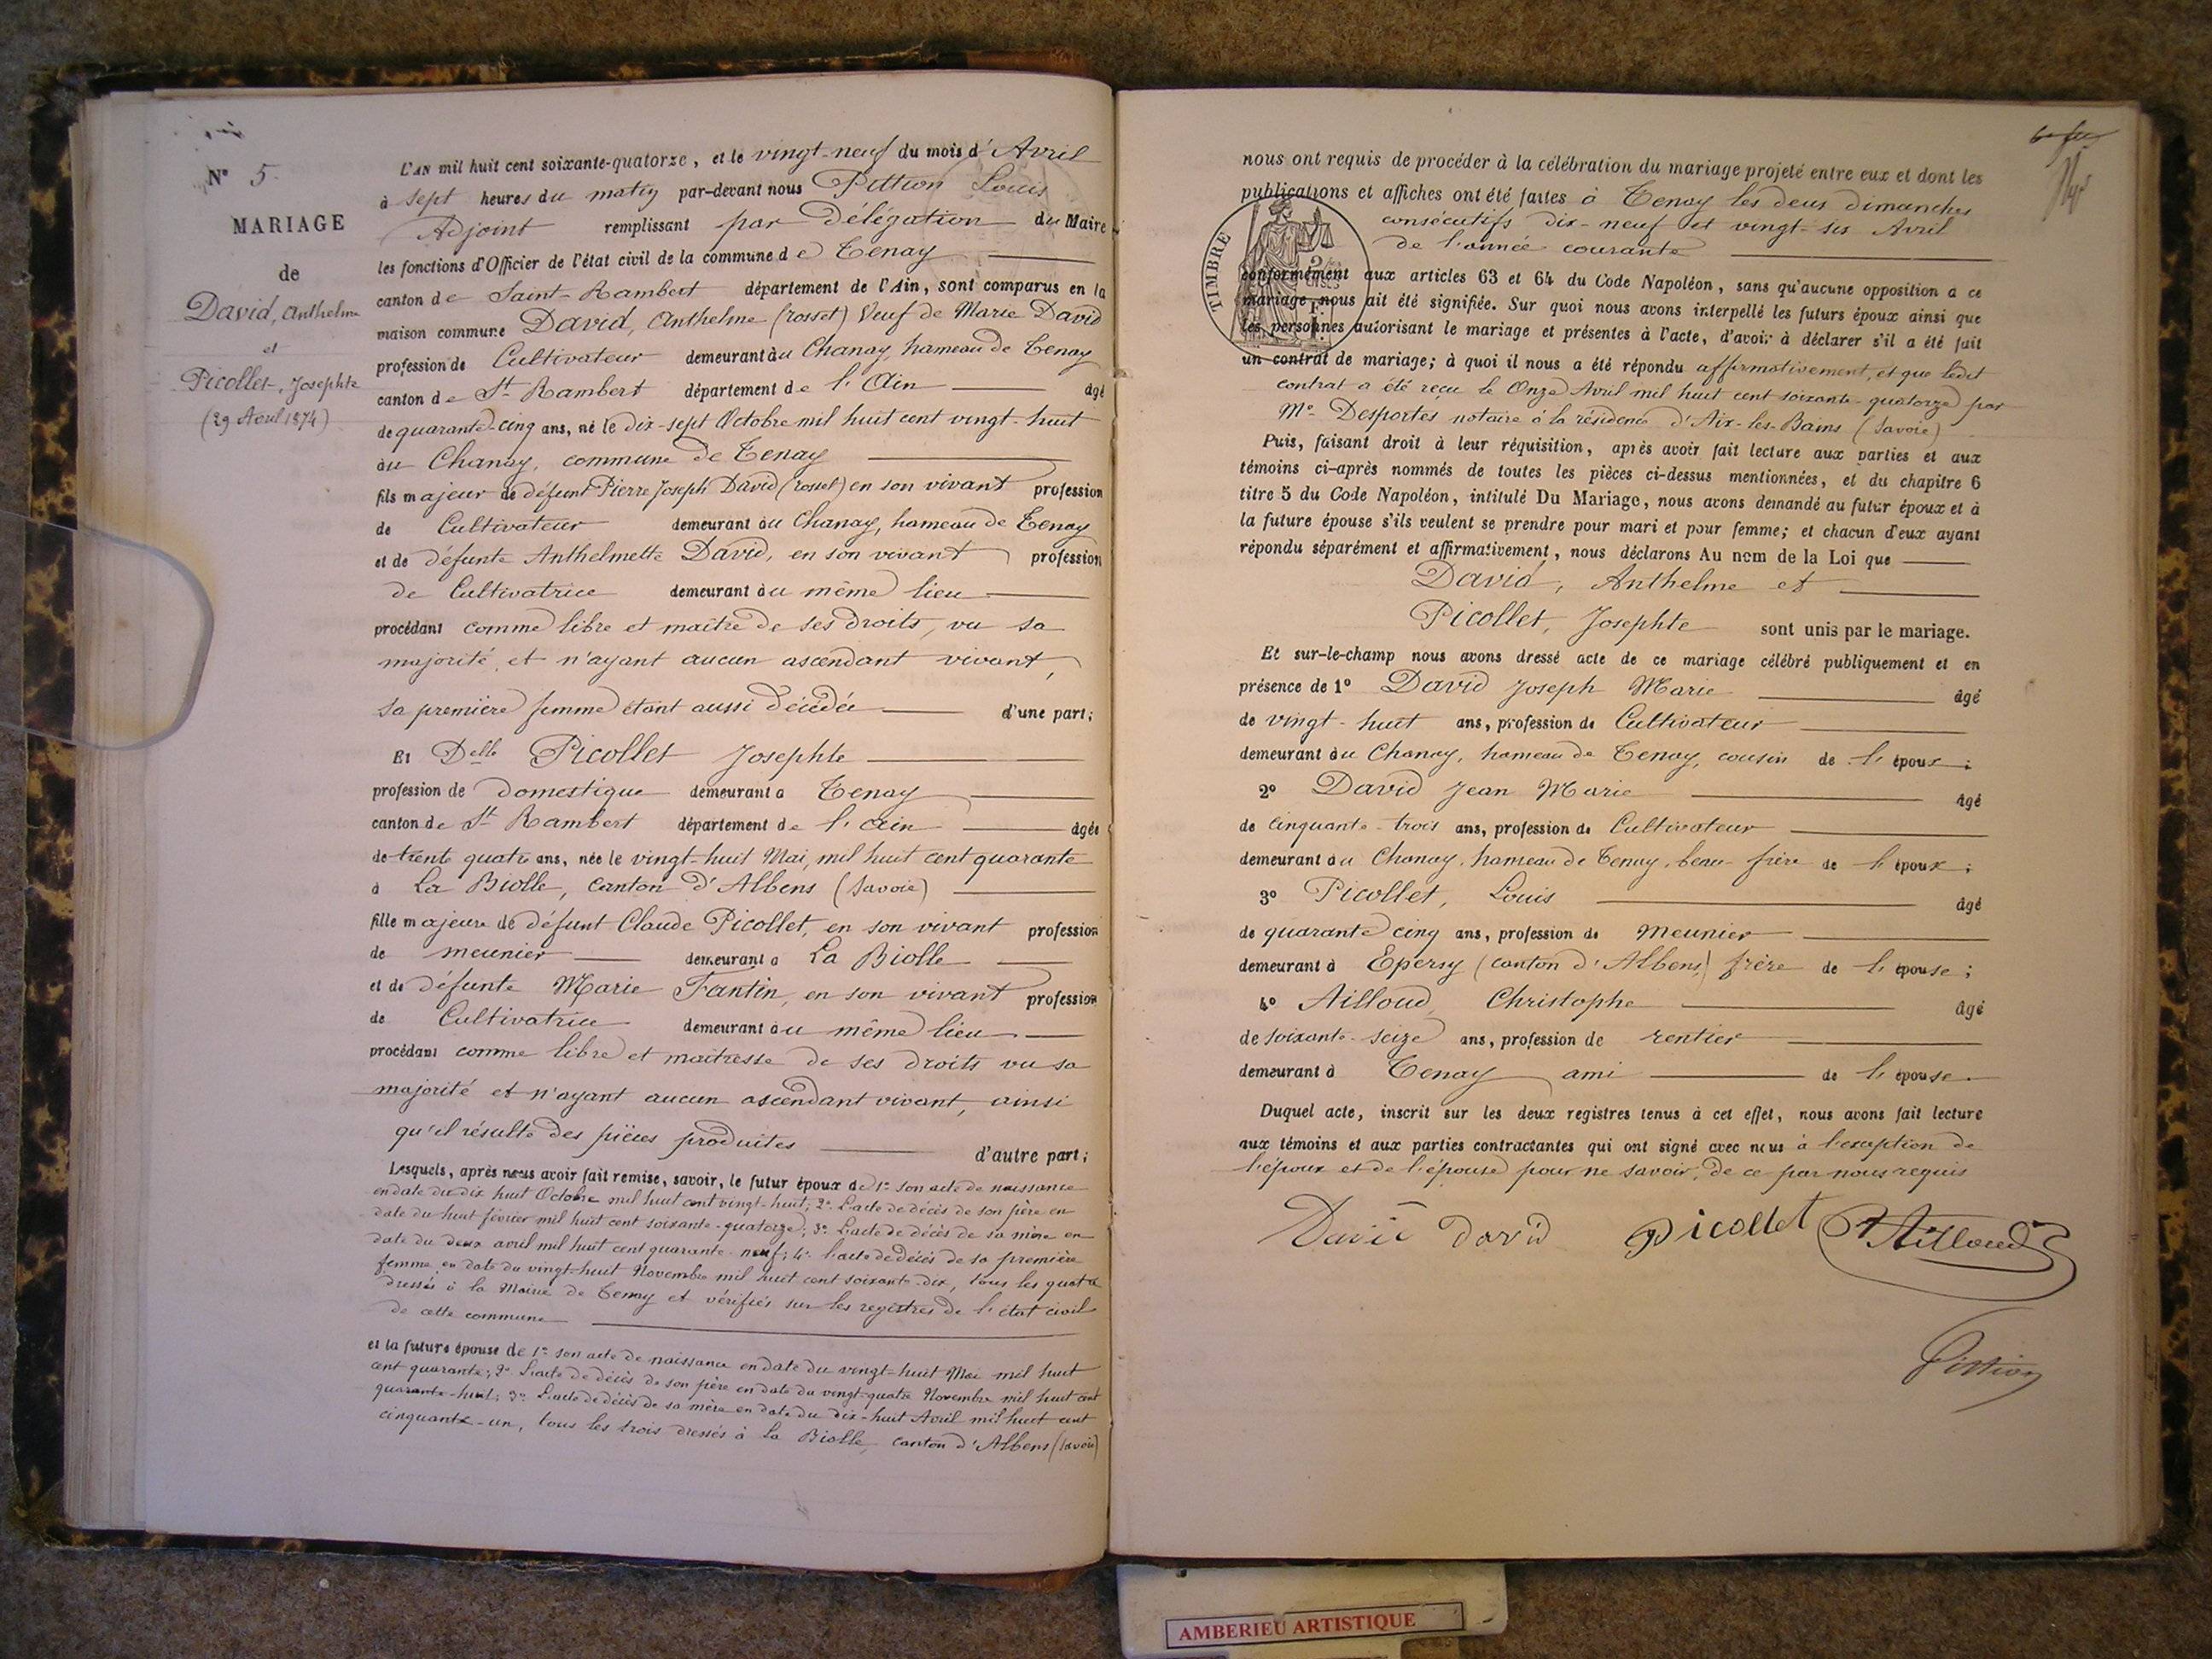 N° 5
MARIAGE
de
David, Anthelme
et
Picollet, Josephte
(29 Avril 1874)
L'AN mil huit cent soixante-quatorze, et le vingt-neuf du mois d'Avril
à sept heures du matin par-devant nous Pittion Louis
Adjoint remplissant par délégation du Maire
les fonctions d'Officier de l'état civil de la commune de Tenay
canton de Saint-Rambert département de l'Ain, sont comparus en la
maison commune David, Anthelme (rosset) Veuf de Marie David
profession de Cultivateur demeurant au Chanay, hameau de Tenay
canton de St Rambert département de l'Ain âgé
de quarante-cinq ans, né le dix-sept Octobre mil huit cent vingt-huit
au Chanay, commune de Tenay
fils majeur de défunt Pierre Joseph David (rosset) en son vivant profession
de Cultivateur demeurant au Chanay, hameau de Tenay
et de défunte Anthelmette David, en son vivant profession
de Cultivatrice demeurant au même lieu
procédant comme libre et maître de ses droits, vu sa
majorité et n'ayant aucun ascendant vivant,
sa première femme étant aussi décédée d'une part;
Et Delle Picollet Josephte
profession de domestique demeurant a Tenay
canton de St Rambert département de l'ain âgée
de trente quatre ans, née le vingt-huit Mai, mil huit cent quarante
à La Biolle, canton d'Albens (Savoie)
fille majeure de défunt Claude Picollet, en son vivant profession
de meunier demeurant a La Biolle
et de défunte Marie Fantin, en son vivant profession
de Cultivatrice demeurant au même lieu
procédant comme libre et maîtresse de ses droits vu sa
majorité et n'ayant aucun ascendant vivant, ainsi
qu'il résulte des pièces produites d'autre part;
Lesquels, après nous avoir fait remise, savoir, le futur époux de 1° son acte de naissance
en date du dix huit Octobre mil huit cent vingt-huit; 2° L'acte de décès de son père en
date du huit février mil huit cent soixante-quatorze; 3° L'acte de décès de sa mère en
date du deux avril mil huit cent quarante-neuf; 4° l'acte de décès de sa première
femme en date du vingt-huit Novembre mil huit cent soixante-dix, tous les quatre
dressés à la Mairie de Tenay et vérifiés sur les registres de l'état civil
de cette commune
et la future épouse de 1° son acte de naissance en date du vingt-huit Mai mil huit
cent quarante; 2° L'acte de décès de son père en date du vingt-quatre Novembre mil huit cent
quarante-huit; 3° L'acte de décès de sa mère en date du dix-huit Avril mil huit cent
cinquante-un, tous les trois dressés à La Biolle, canton d'Albens (Savoie)
nous ont requis de procéder à la célébration du mariage projeté entre eux et dont les
publications et affiches ont été faites à Tenay les deux dimanches
consécutifs dix-neuf et vingt-six Avril
de l'année courante
TIMBRE
conformément aux articles 63 et 64 du Code Napoléon, sans qu'aucune opposition à ce
mariage nous ait été signifiée. Sur quoi nous avons interpellé les futurs époux ainsi que
les personnes autorisant le mariage et présentes à l'acte, d'avoir à déclarer s'il a été fait
un contrat de mariage; à quoi il nous a été répondu affirmativement, et que ledit
contrat a été reçu le Onze Avril mil huit cent soixante-quatorze par
Me Desportes notaire à la résidence d'Aix-les-Bains (Savoie)
Puis, faisant droit à leur réquisition, après avoir fait lecture aux parties et aux
témoins ci-après nommés de toutes les pièces ci-dessus mentionnées, et du chapitre 6
titre 5 du Code Napoléon, intitulé Du Mariage, nous avons demandé au futur époux et à
la future épouse s'ils veulent se prendre pour mari et pour femme; et chacun d'eux ayant
répondu séparément et affirmativement, nous déclarons Au nom de la Loi que
David, Anthelme et
Picollet, Josephte sont unis par le mariage.
Et sur-le-champ nous avons dressé acte de ce mariage célébré publiquement et en
présence de 1° David Joseph Marie âgé
de vingt-huit ans, profession de Cultivateur
demeurant au Chanay, hameau de Tenay, cousin de l'époux;
2° David Jean Marie âgé
de cinquante-trois ans, profession de Cultivateur
demeurant au Chanay, hameau de Tenay, beau-frère de l'époux;
3° Picollet, Louis âgé
de quarante cinq ans, profession de Meunier
demeurant à Epersy (canton d'Albens) frère de l'épouse;
4° Ailloud, Christophe âgé
de soixante-seize ans, profession de rentier
demeurant à Tenay ami de l'épouse.
Duquel acte, inscrit sur les deux registres tenus à cet effet, nous avons fait lecture
aux témoins et aux parties contractantes qui ont signé avec nous à l'exception de
l'époux et de l'épouse pour ne savoir, de ce par nous requis
David David Picollet Ailloud
Pittion
AMBERIEU ARTISTIQUE